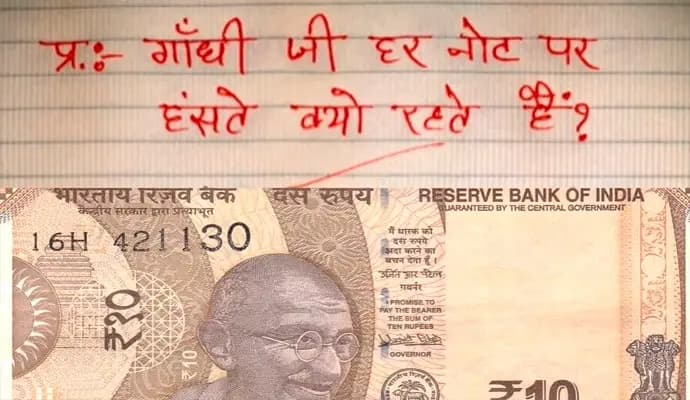 प्र.:- गाँधी जी हर नोट पर
हंसते क्यो रहते हैं?
भारतीय रिज़र्व बैंक दस रुपये
केन्द्रीय सरकार द्वारा प्रत्याभूत
RESERVE BANK OF INDIA
GUARANTEED BY THE CENTRAL GOVERNMENT
16H 421130
मैं धारक को
दस रुपये
अदा करने का
वचन देता हूँ।
गवर्नर
I PROMISE TO
PAY THE BEARER
THE SUM OF
TEN RUPEES
GOVERNOR
₹10
₹10
₹10